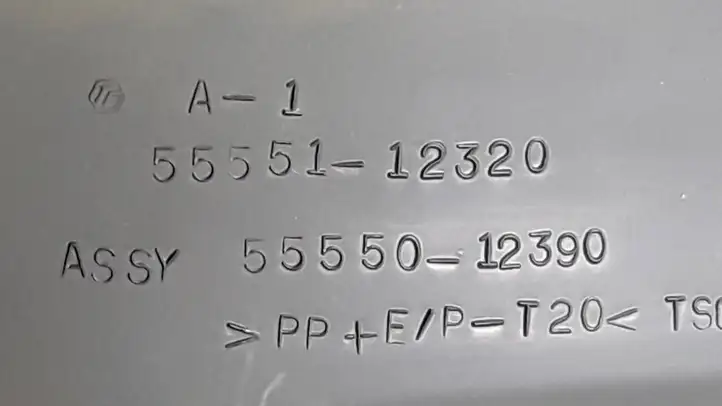 A-1
55551-12320
ASSY 55550-12390
>PP+E/P-T20<